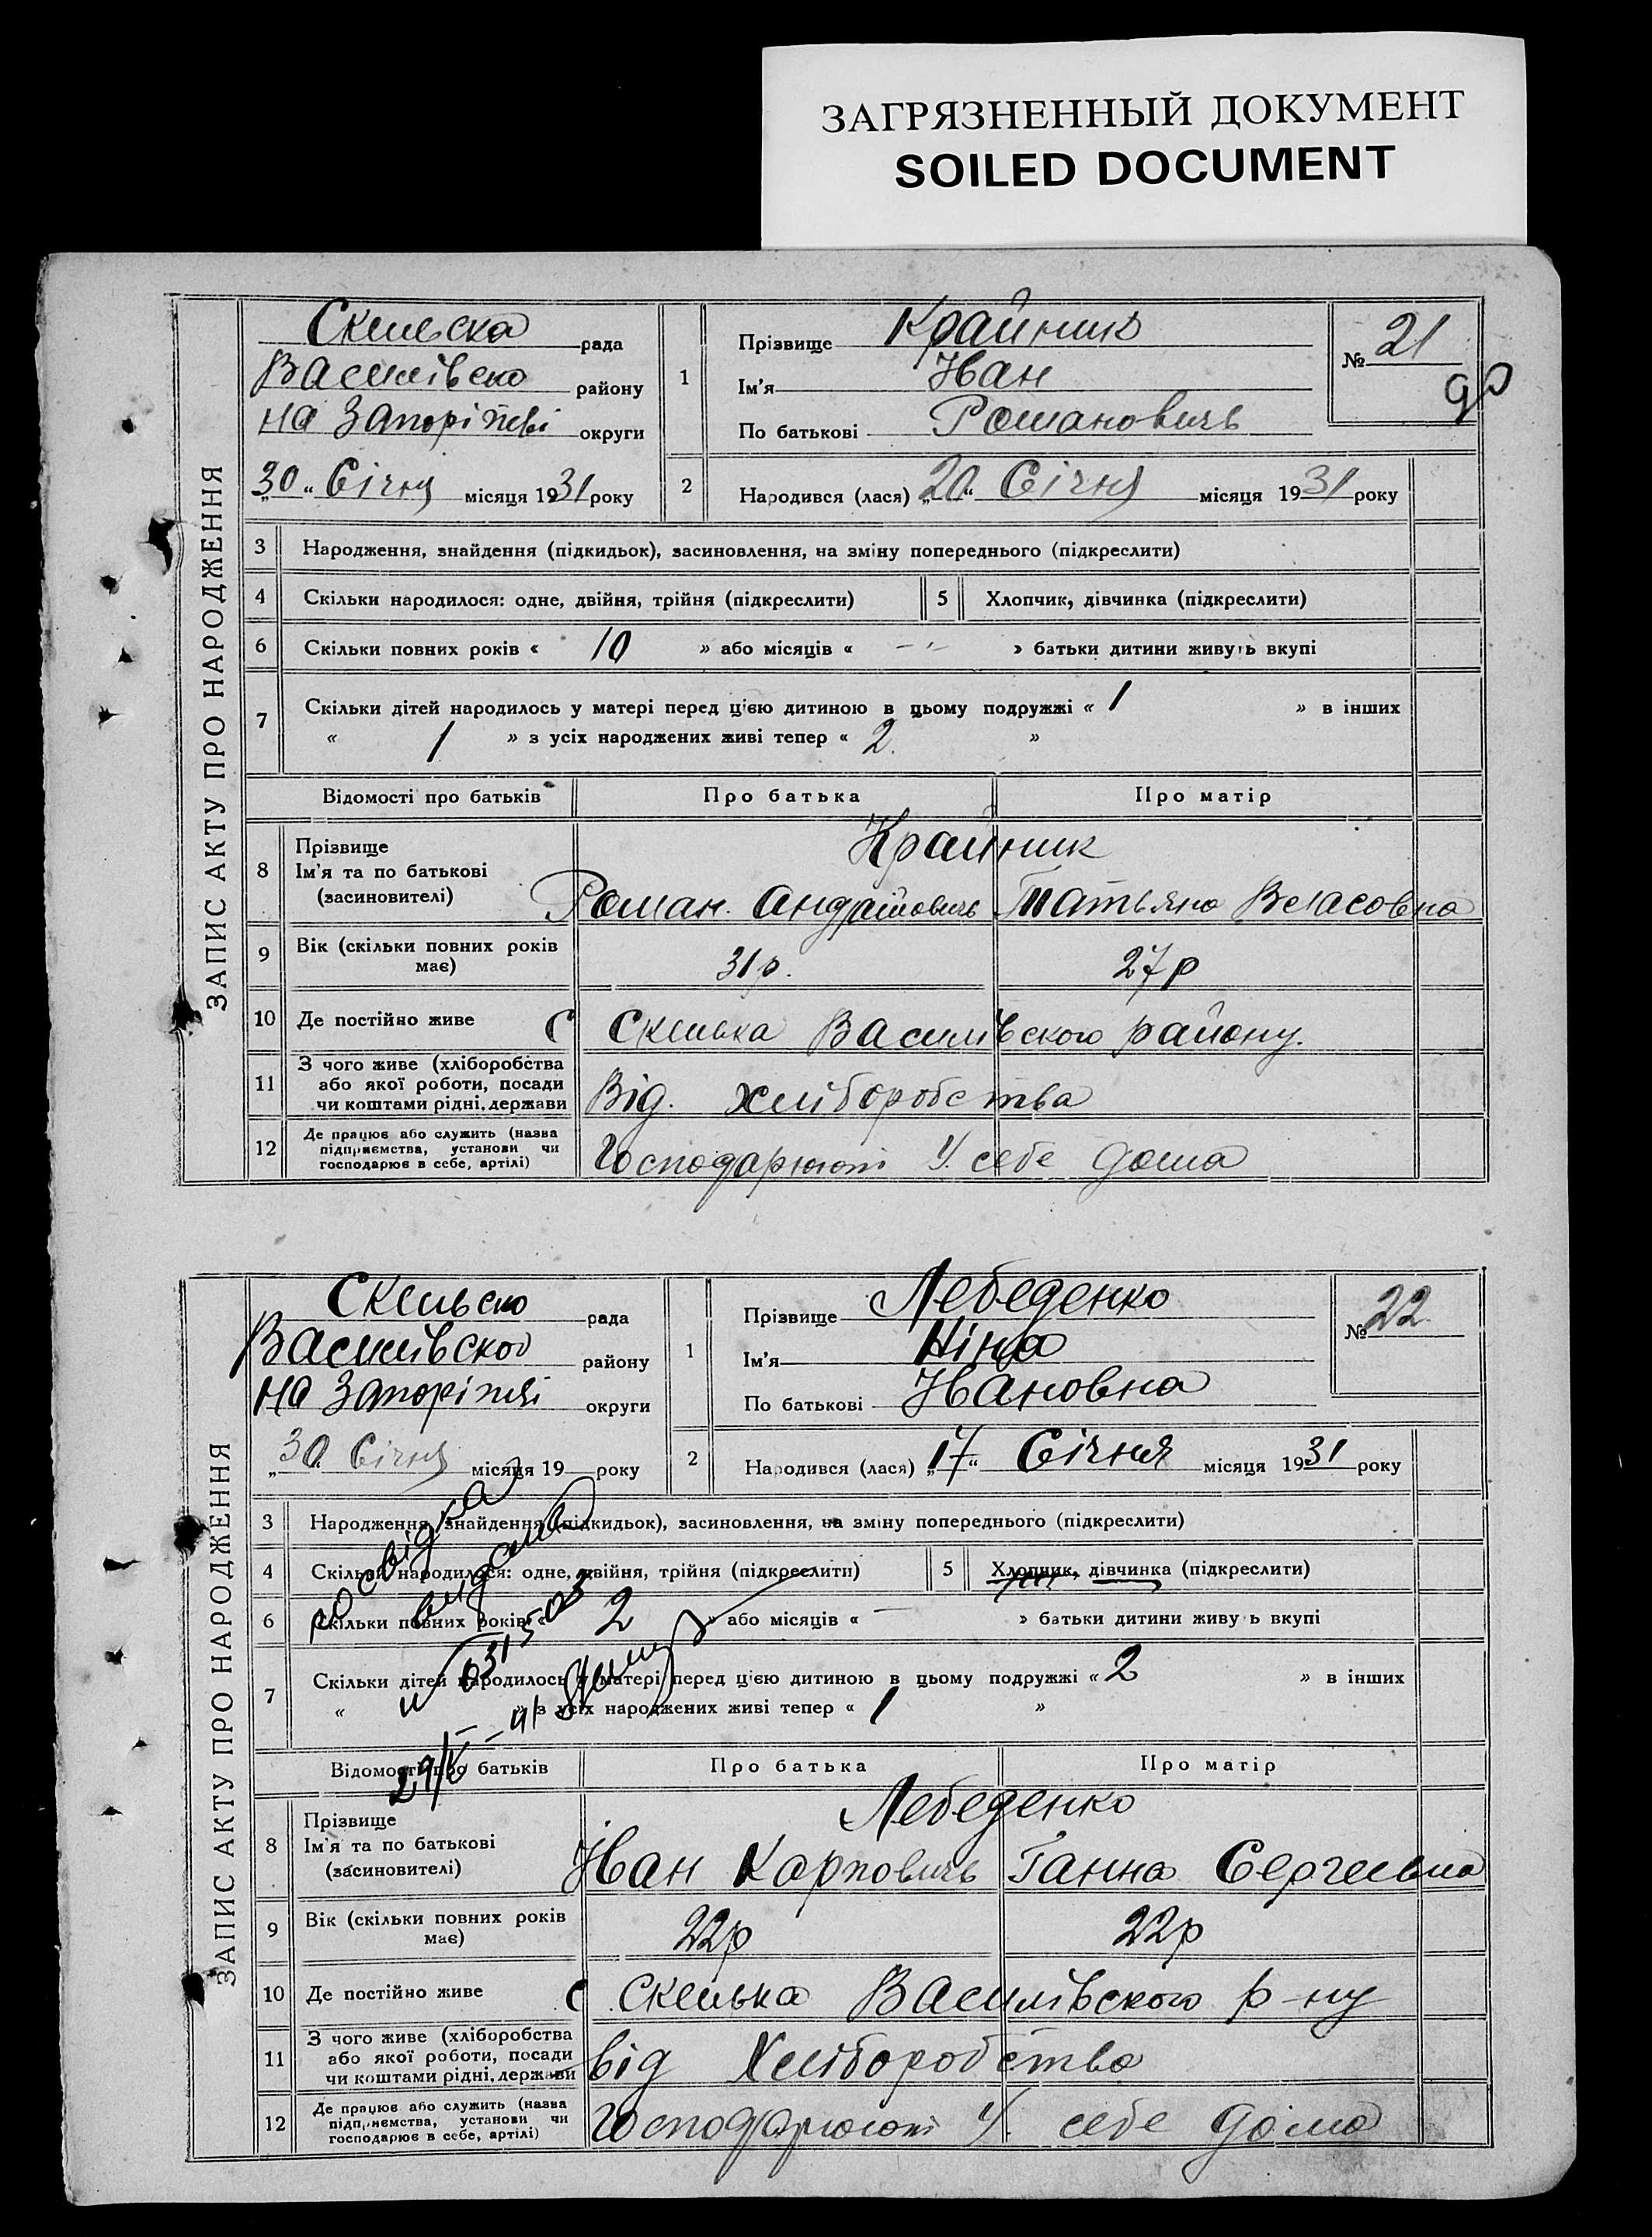 ЗАГРЯЗНЕННЫЙ ДОКУМЕНТ
SOILED DOCUMENT
ЗАПИС АКТУ ПРО НАРОДЖЕННЯ
Скельска рада
Василівско району
на Запоріжжі округи
„30“ Січня місяця 1931 року
1
Прізвище Крайник
Ім'я Іван
По батькові Романовичь
№ 21
2
Народився (лася) „20“ Січня місяця 1931 року
3 Народження, знайдення (підкидьок), засиновлення, на зміну попереднього (підкреслити)
4 Скільки народилося: одне, двійня, трійня (підкреслити) 5 Хлопчик, дівчинка (підкреслити)
6 Скільки повних років « 10 » або місяців « - » батьки дитини живуть вкупі
7 Скільки дітей народилось у матері перед цією дитиною в цьому подружжі « 1 » в інших
« 1 » з усіх народжених живі тепер « 2. »
Відомості про батьків Про батька Про матір
8 Прізвище
Ім'я та по батькові
(засиновителі)
Крайник
Роман Татьяна Власовна
9 Вік (скільки повних років
має)
31р. 27р
10 Де постійно живе С Скелька Василівского району.
11 З чого живе (хліборобства
або якої роботи, посади
чи коштами рідні, держави
Від. хліборобства
12 Де працює або служить (назва
підприємства, установи чи
господарює в себе, артілі)
Господарюють У. себе дома
ЗАПИС АКТУ ПРО НАРОДЖЕННЯ
Скельско рада
Василівского району
на Запоріжжі округи
„30“ Січня місяця 19 року
1
Прізвище Лебеденко
Ім'я Ніна
По батькові Ивановна
№ 22
2
Народився (лася) „17“ Січня місяця 1931 року
3 Народження, знайдення (підкидьок), засиновлення, на зміну попереднього (підкреслити)
4 Скільки народилося: одне, двійня, трійня (підкреслити) 5 Хлопчик, дівчинка (підкреслити)
6 Скільки повних років « 2 » або місяців « — » батьки дитини живуть вкупі
7 Скільки дітей народилось у матері перед цією дитиною в цьому подружжі « 2 » в інших
« » з усіх народжених живі тепер « 1 »
посвідка
видана
Відомості про батьків Про батька Про матір
8 Прізвище
Ім'я та по батькові
(засиновителі)
Лебеденко
Іван Карповичь Ганна Сергеевна
9 Вік (скільки повних років
має)
22р 22р
10 Де постійно живе С Скелька Василівского р-ну
11 З чого живе (хліборобства
або якої роботи, посади
чи коштами рідні, держави
від Хліборобства
12 Де працює або служить (назва
підприємства, установи чи
господарює в себе, артілі)
Господарюють У. себе дома